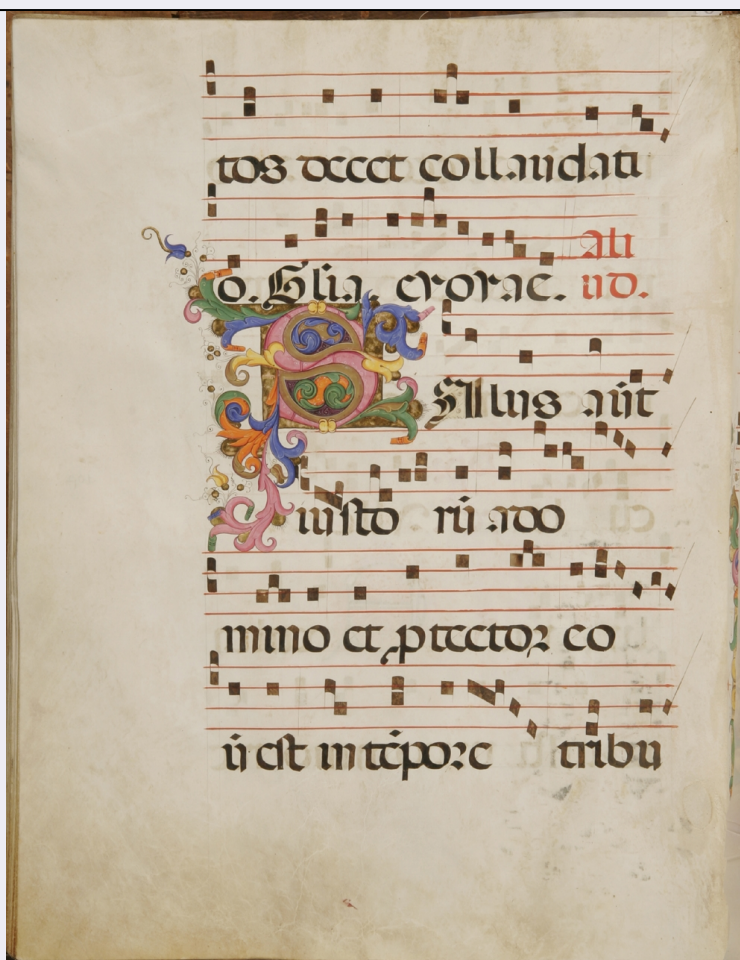 tos decet collaudati
o. Glia. evovae. Ali
ud.
SAlus aūt
iusto rū ado
mino et ꝓtectoꝛ eo
ꝝ̄ est in tēpoꝛe tribu